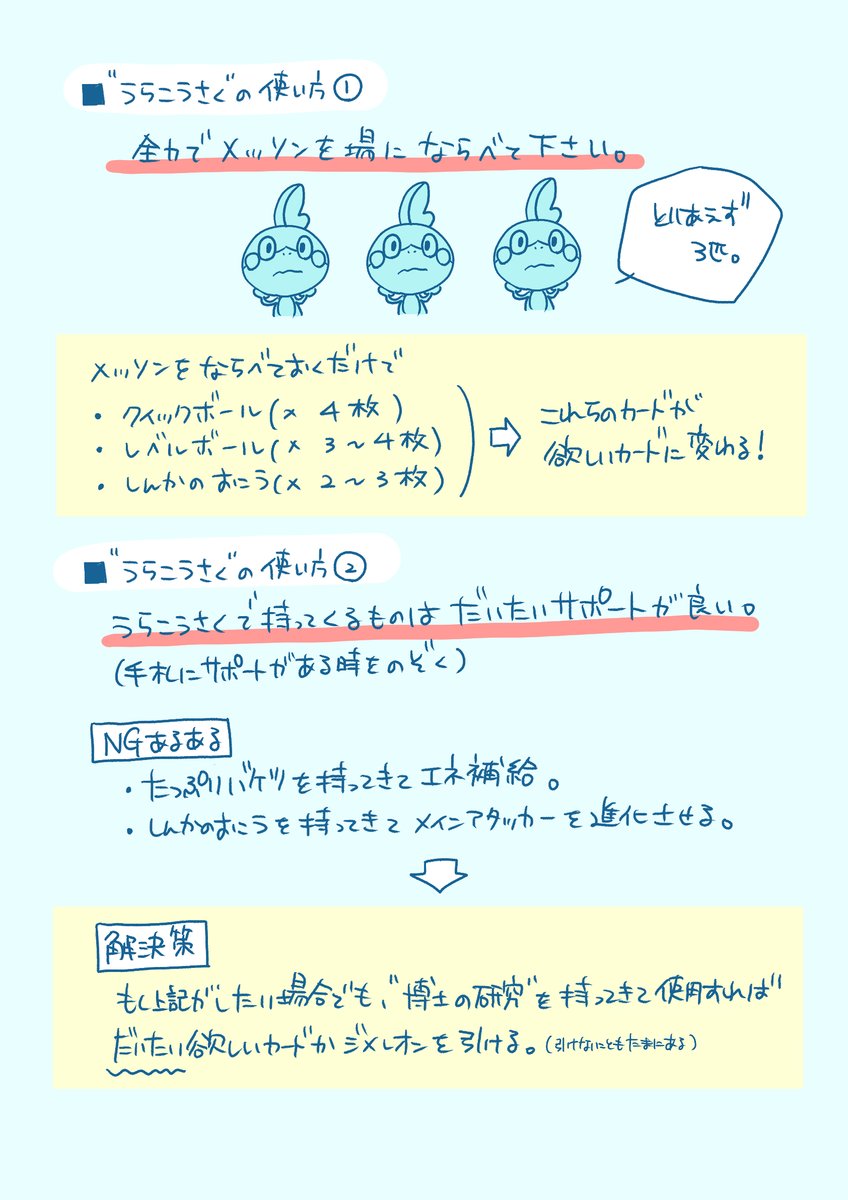 ■"うらこうさく"の使い方①
全力でメッソンを場にならべて下さい。
とりあえず
3匹。
メッソンをならべておくだけで
・クイックボール(× 4枚)
・レベルボール(× 3～4枚)
・しんかのおこう(× 2～3枚)
これらのカードが
欲しいカードに変わる!
■"うらこうさく"の使い方②
うらこうさくで持ってくるものはだいたいサポートが良い。
(手札にサポートがある時をのぞく)
NGあるある
・たっぷりバケツを持ってきてエネ補給。
・しんかのおこうを持ってきてメインアタッカーを進化させる。
解決策
もし上記がしたい場合でも、"博士の研究"を持ってきて使用すれば
だいたい欲しいカードかジメレオンを引ける。(引けないこともたまにある)